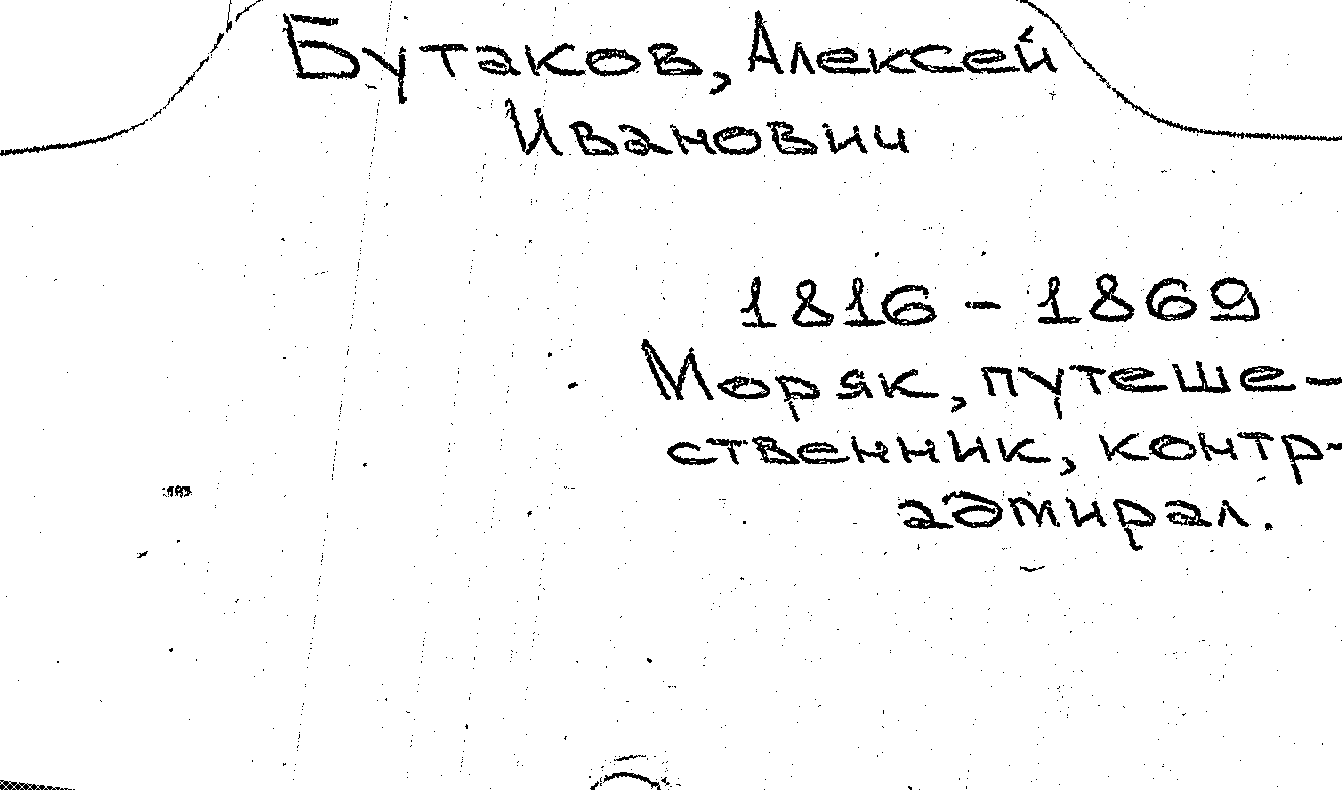 Бутаков, Алексей
Иванович
1816 - 1869
Моряк, путеше-
ственник, контр-
адмирал.